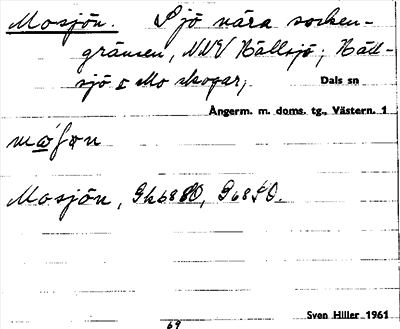 Mosjön. Sjö nära socken-
gränsen, NNV Hällsjö; Häll-
sjö o Mo skogar,
Dals sn
Ångerm. m. doms. tg., Västern. 1
Mosjön, Gk 68 SO, G 68 SO.
69
Sven Hiller 1961